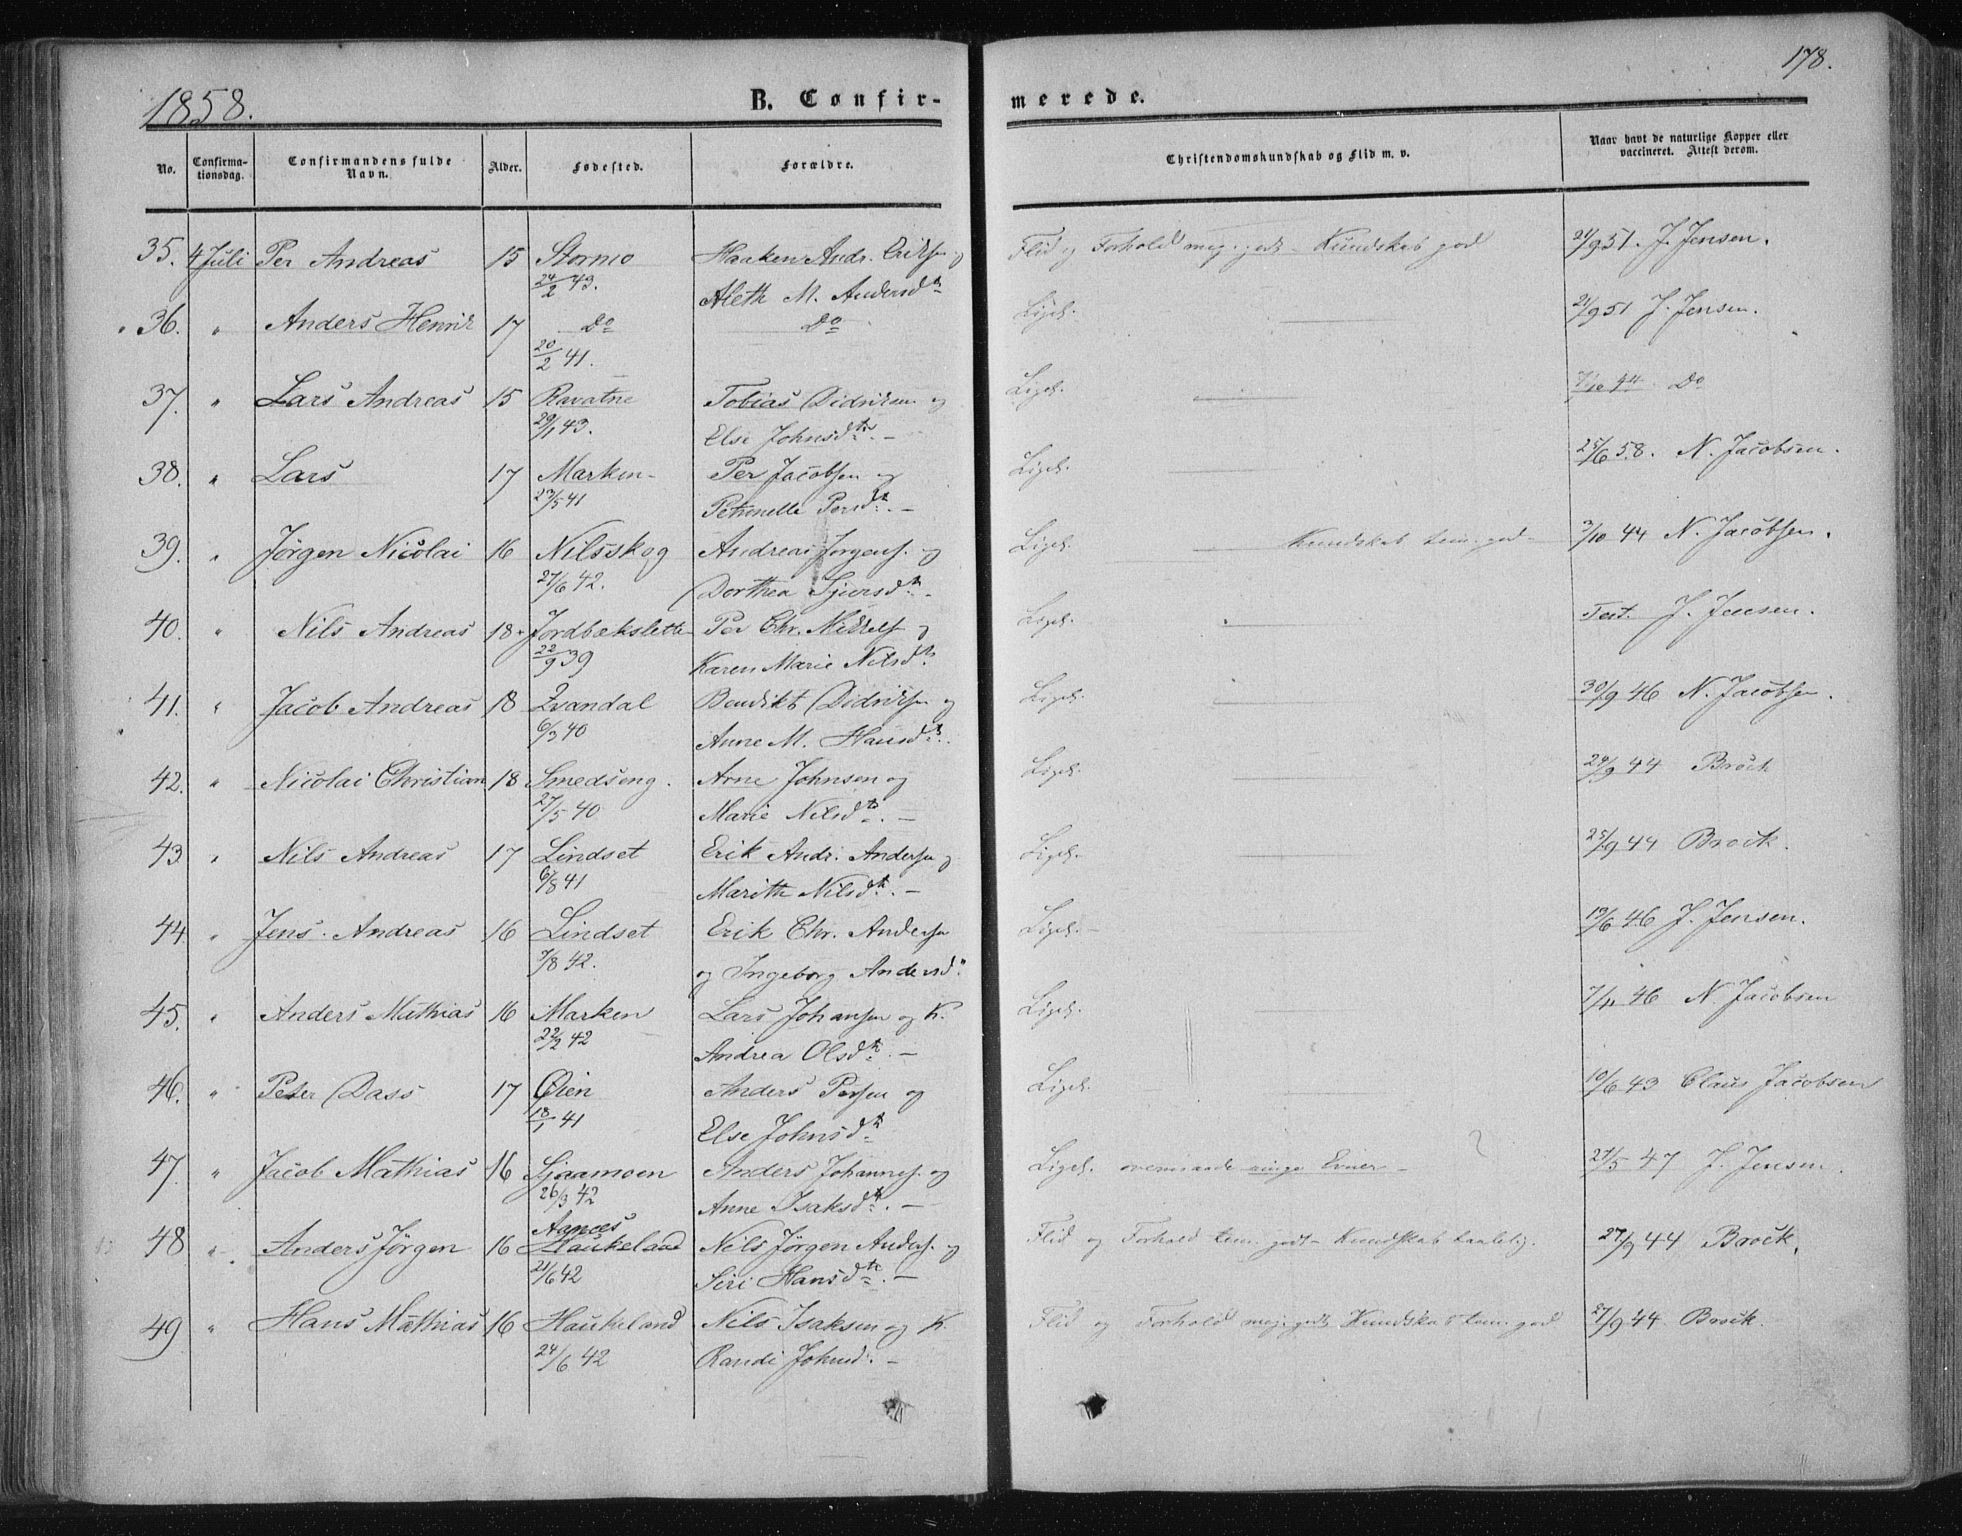 178.
1858. B. Confir- merede.
No. Confirma-tionsdag. Confirmandens fulde Navn. Alder. Fødested. Forældre. Christendomskundskab og Flid m. v. Naar havt de naturlige Kopper eller vaccineret. Attest derom.
35. 4 Juli Per Andreas 15 Stormo Haaken Andr. Eriksen og Flid og Forhold meg. godt - Kundskab god 21/9 51. J. Jensen.
24/2 43. Aleth M. Andersdtr
36. " Anders Henrik 17 Do Do Ligel. 21/9 51 J. Jensen.
20/2 41.
37. " Lars Andreas 15 Ravatne Tobias Didriksen og Ligel. Do
29/1 43. Else Johnsdtr. -
38. " Lars 17 Marken - Per Jacobsen og Ligel. 25/6 58. N. Jacobsen.
23/5 41 Petronelle Persdtr. -
39. " Jörgen Nicolai 16 Nilsskog Andreas Jörgens. og Ligel. Kundskab tem. god - 3/10 44 N. Jacobsen.
27/6 42. Dorthea Sjursdtr. -
40. " Nils Andreas 18 Jordbækslette Per Chr. Mikkels. og Ligel. Test. J. Jensen.
22/9 39 Karen Marie Nilsdtr
41. " Jacob Andreas 18 Evandal Bendikt Didriksen og Ligel. 30/9 46 N. Jacobsen.
6/3 40 Anne M. Hansdtr.
42. " Nicolai Christian 18 Smedseng. Arne Johnsen og Ligel. 24/9 44 Brock
27/5 40 Marie Nilsdtr. -
43. " Nils Andreas 17 Lindset Erik Andr. Andersen og Ligel. 25/9 44 Brock.
6/8 41 Marith Nilsdtr. -
44. " Jens Andreas 16 Lindset Erik Chr. Andersen Ligel. - 19/6 46 J. Jensen.
7/8 42. og Ingeborg Andersd.
45. " Anders Mathias 16 Marken Lars Johansen og K. Ligel. 46 N. Jacobsen
22/2 42 Andrea Olsdtr. -
46. " Peter Dass 17 Øien Anders Persen og Ligel. 10/6 43 Claus Jacobsen
18/1 41 Else Johnsdtr
47. " Jacob Mathias 16 Sjaamoen Anders Johannes. og Ligel. overmaade ringe Evner - 27/5 47 J. Jensen.
26/3 42 Anne Isaksdtr. -
Aanæs
48 " Anders Jörgen 16 Haukeland Nils Jörgen Anders. og Flid og Forhold tem. godt - Kundskab taalelig. 27/9 44 Brock.
21/6 42 Siri Hansdtr. -
49 " Hans Mathias 16 Haukeland Nils Isaksen og K. Flid og Forhold meg. godt Kundskab tem. god 27/9 44 Brock.
24/6 42 Randi Johnsd. -